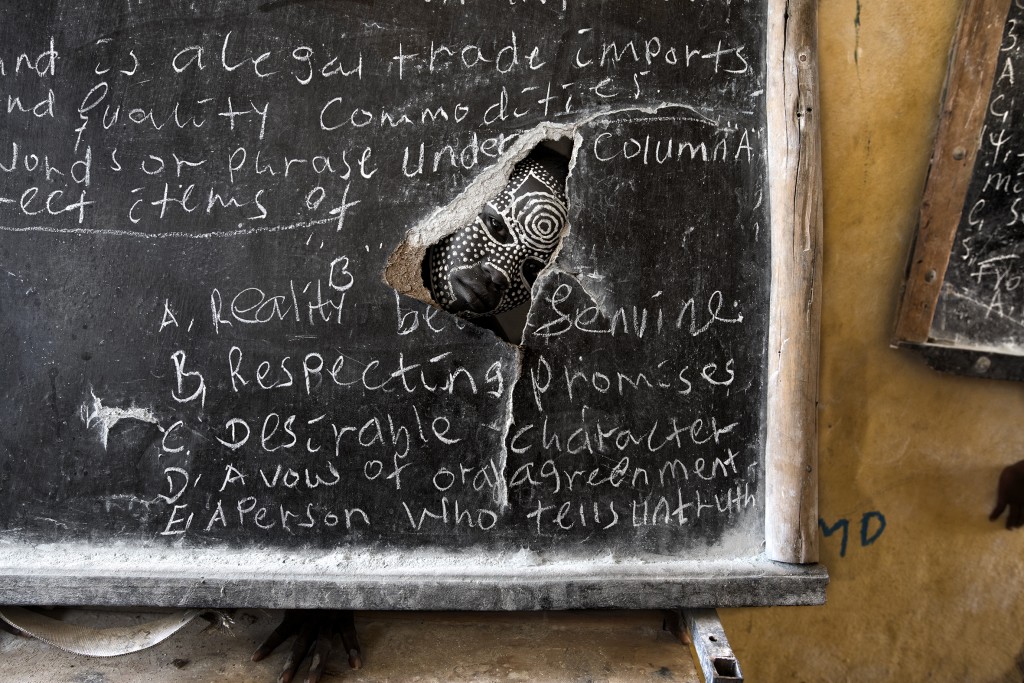 and is alegal trade imports
and quality commodities.
words or phrase under column "A"
rect items of
"B"
A. Reality be genuine.
B, Respecting promises
C. Desirable character
D. A vow of oral agreenment.
E, A Person who tells untruth
MD
3.
A
C
4.